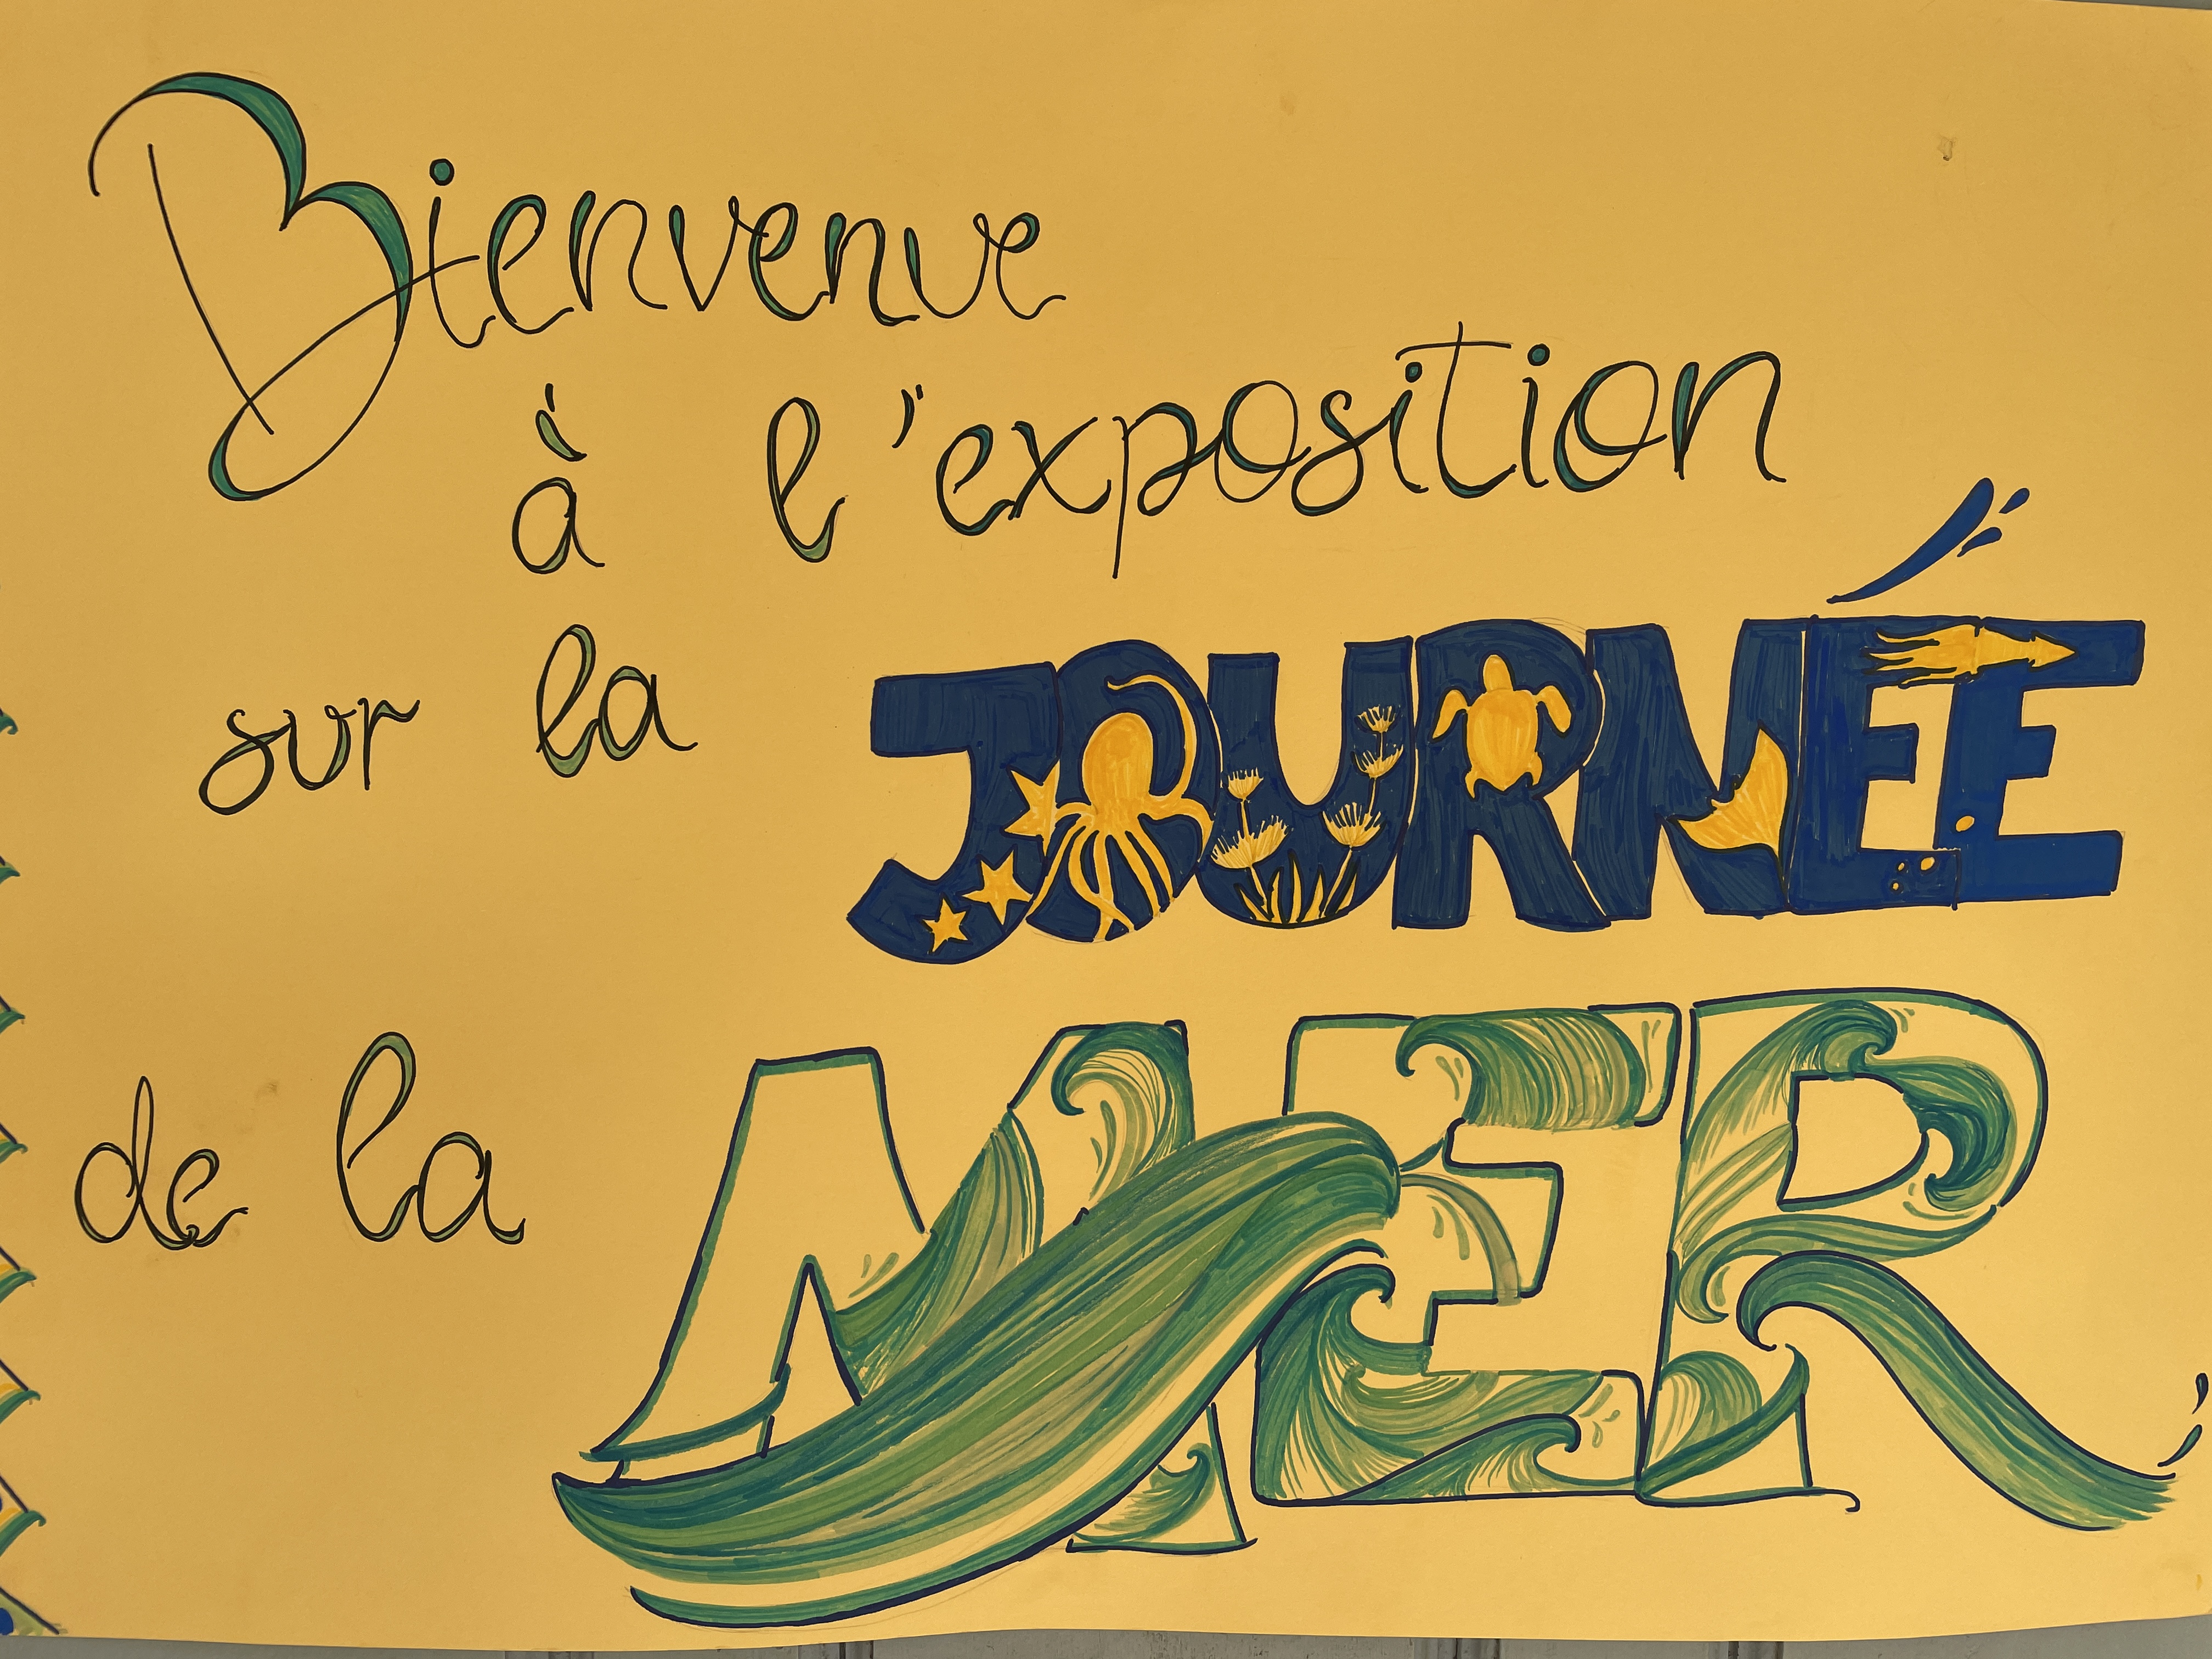 Bienvenue
à l'exposition
sur la JOURNÉE
de la MER